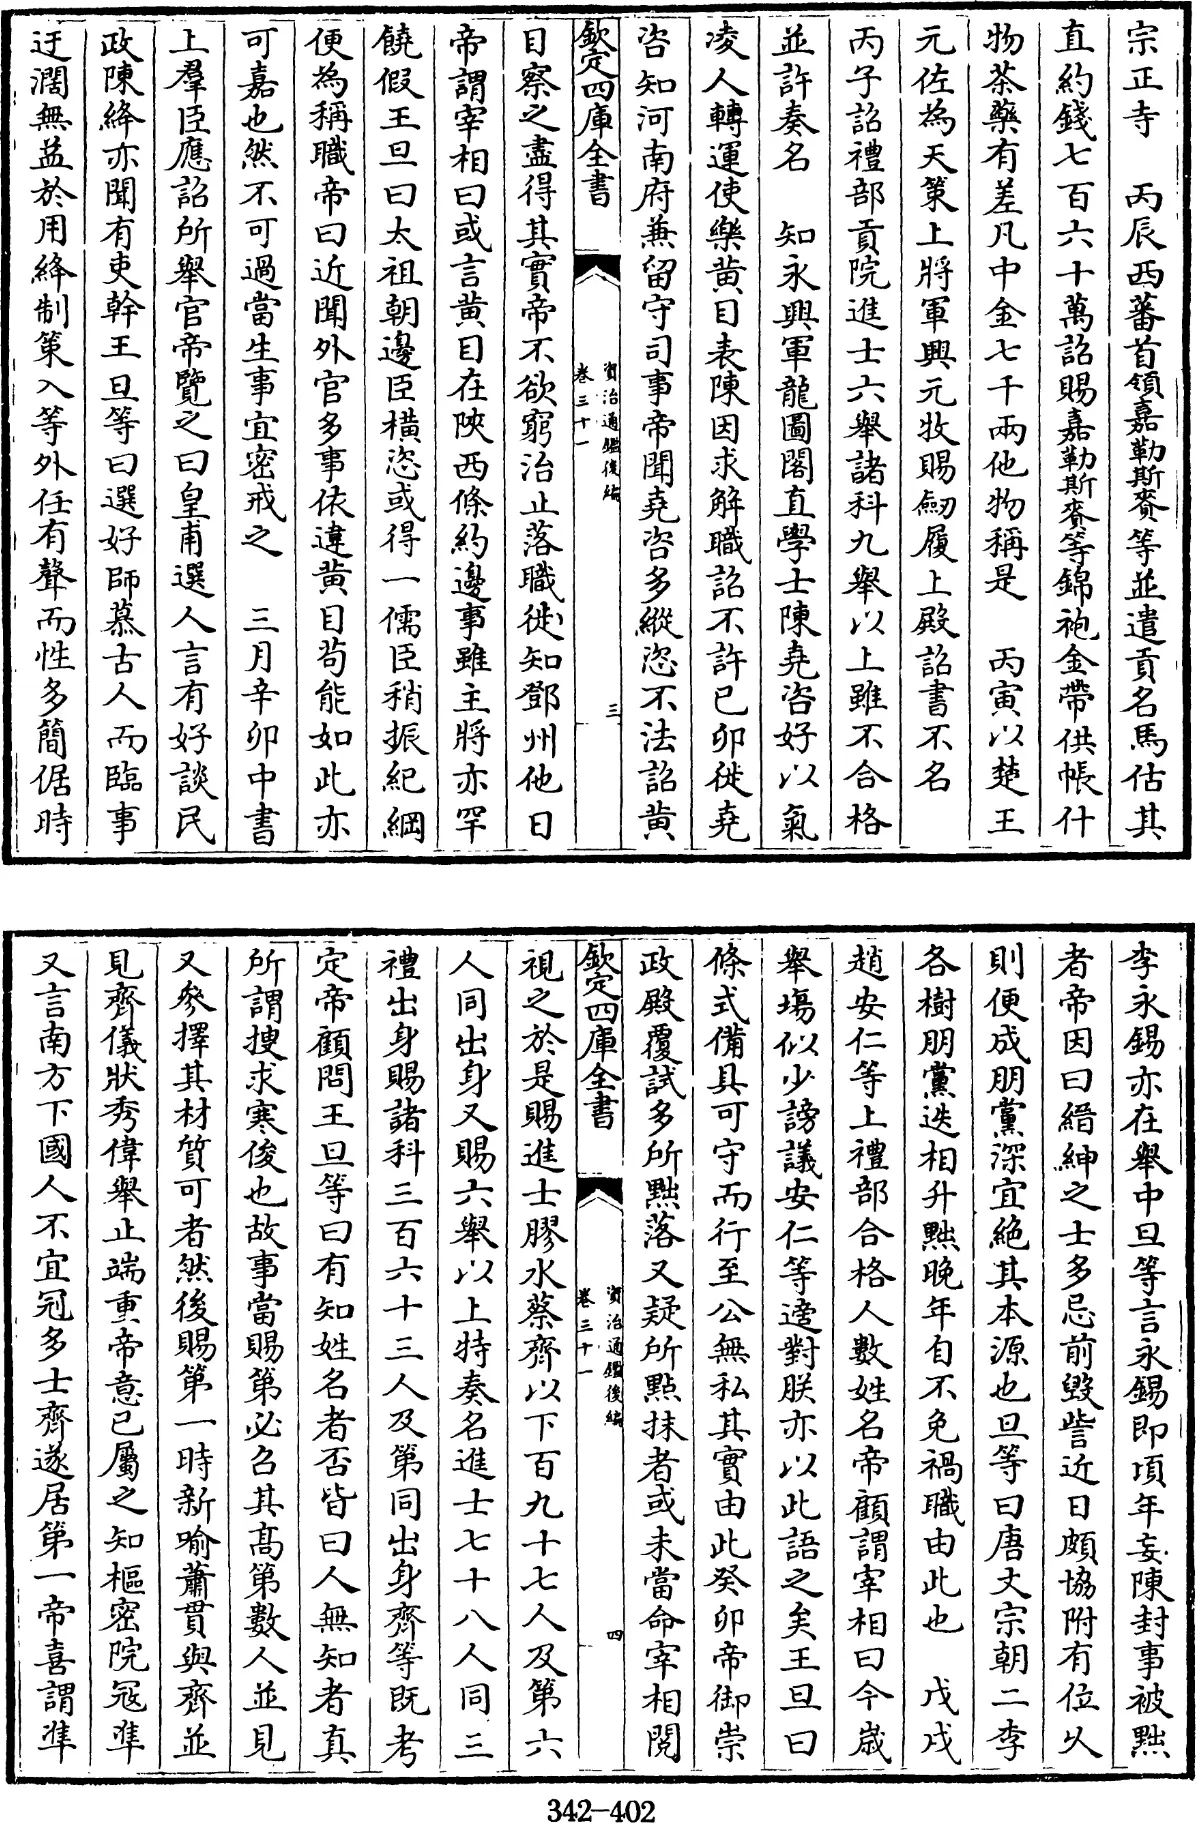 宗正寺　丙辰西蕃首領嘉勒斯賚等並遣貢名馬估其
直約錢七百六十萬詔賜嘉勒斯賚等錦袍金帶供帳什
物茶藥有差凡中金七千兩他物稱是　丙寅以楚王
元佐為天策上將軍興元牧賜劒履上殿詔書不名
丙子詔禮部貢院進士六舉諸科九舉以上雖不合格
並許奏名　知永興軍龍圖閣直學士陳堯咨好以氣
凌人轉運使樂黄目表陳因求解職詔不許已卯徙堯
咨知河南府兼留守司事帝聞堯咨多縱恣不法詔黄
欽定四庫全書
資治通鑑後編
卷三十一
三
目察之盡得其實帝不欲窮治止落職徙知鄧州他日
帝謂宰相曰或言黄目在陜西條約邊事雖主將亦罕
饒假王旦曰太祖朝邊臣橫恣或得一儒臣稍振紀綱
便為稱職帝曰近聞外官多事依違黄目茍能如此亦
可嘉也然不可過當生事宜密戒之　三月辛卯中書
上羣臣應詔所舉官帝覽之曰皇甫選人言有好談民
政陳絳亦聞有吏幹王旦等曰選好師慕古人而臨事
迂濶無益於用絳制策入等外任有聲而性多簡倨時
李永錫亦在舉中旦等言永錫即頃年妄陳封事被黜
者帝因曰縉紳之士多忌前毀訾近日頗協附有位㕥
則便成朋黨深宜絶其本源也旦等曰唐文宗朝二李
各樹朋黨迭相升黜晚年自不免禍職由此也　戊戌
趙安仁等上禮部合格人數姓名帝顧謂宰相曰今嵗
舉塲似少謗議安仁等適對朕亦以此語之矣王旦曰
條式備具可守而行至公無私其實由此癸卯帝御崇
政殿覆試多所黜落又疑所點抹者或未當命宰相閱
欽定四庫全書
資治通鑑後編
卷三十一
四
視之於是賜進士膠水蔡齊以下百九十七人及第六
人同出身又賜六舉以上特奏名進士七十八人同三
禮出身賜諸科三百六十三人及第同出身齊等既考
定帝顧問王旦等曰有知姓名者否皆曰人無知者真
所謂搜求寒俊也故事當賜第必召其髙第數人並見
又參擇其材質可者然後賜第一時新喻蕭貫與齊並
見齊儀狀秀偉舉止端重帝意已屬之知樞密院冦凖
又言南方下國人不宜冠多士齊遂居第一帝喜謂凖
342-402